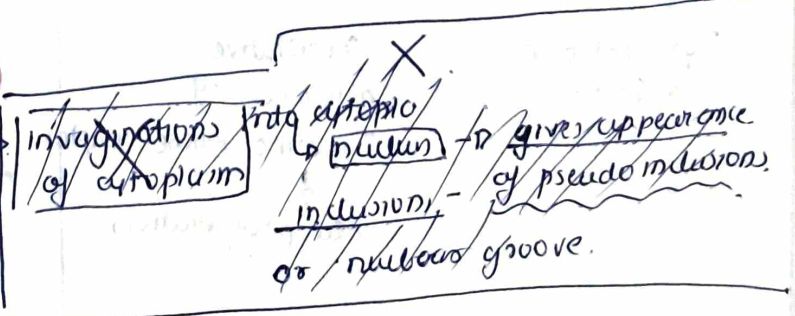 X
invaginations into cytopla
of cytoplasm ↳ nucleus → gives appearance
of pseudo inclusions.
inclusions -
or nuclear groove.